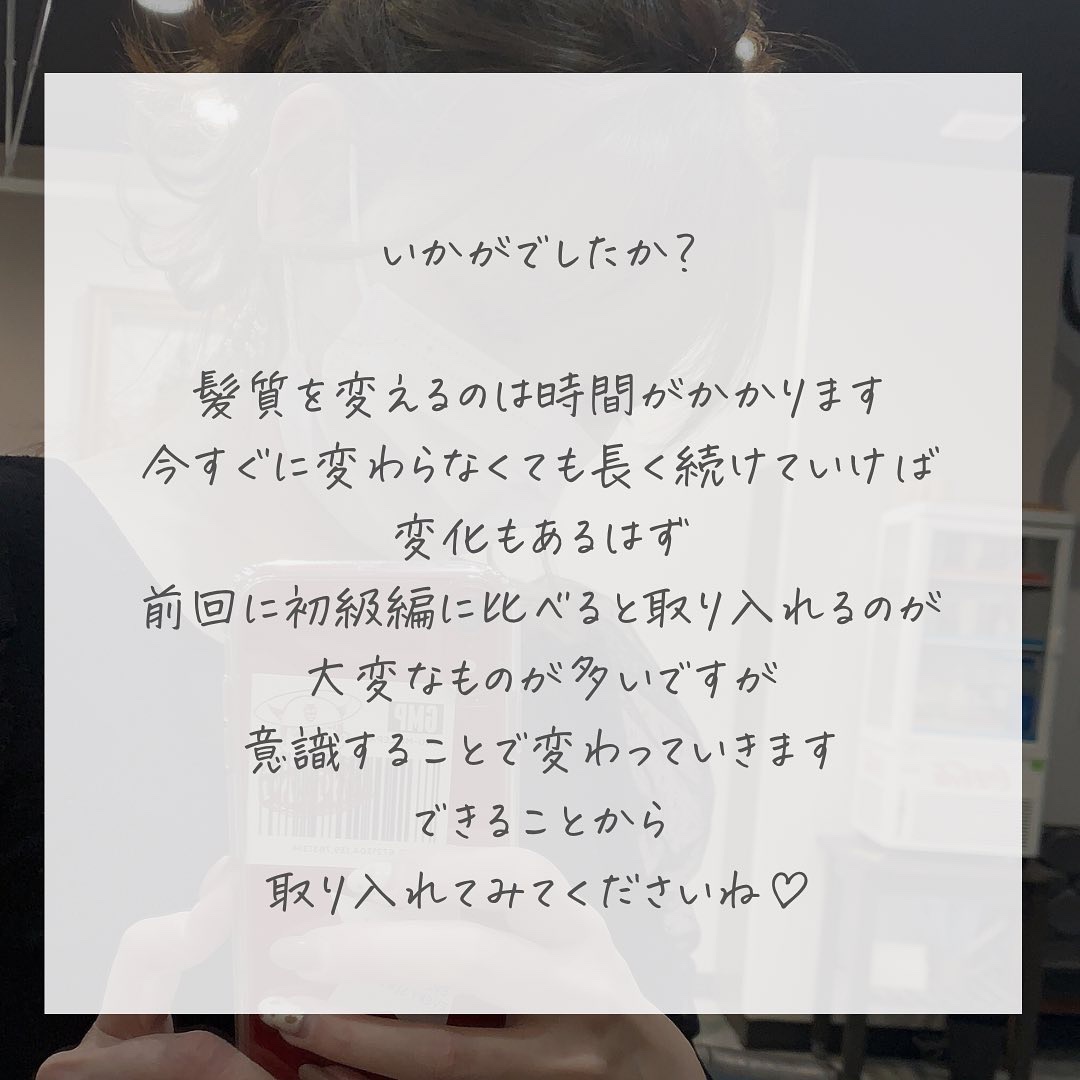 いかがでしたか?
髪質を変えるのは時間がかかります
今すぐに変わらなくても長く続けていけば
変化もあるはず
前回に初級編に比べると取り入れるのが
大変なものが多いですが
意識することで変わっていきます
できることから
取り入れてみてくださいね♡